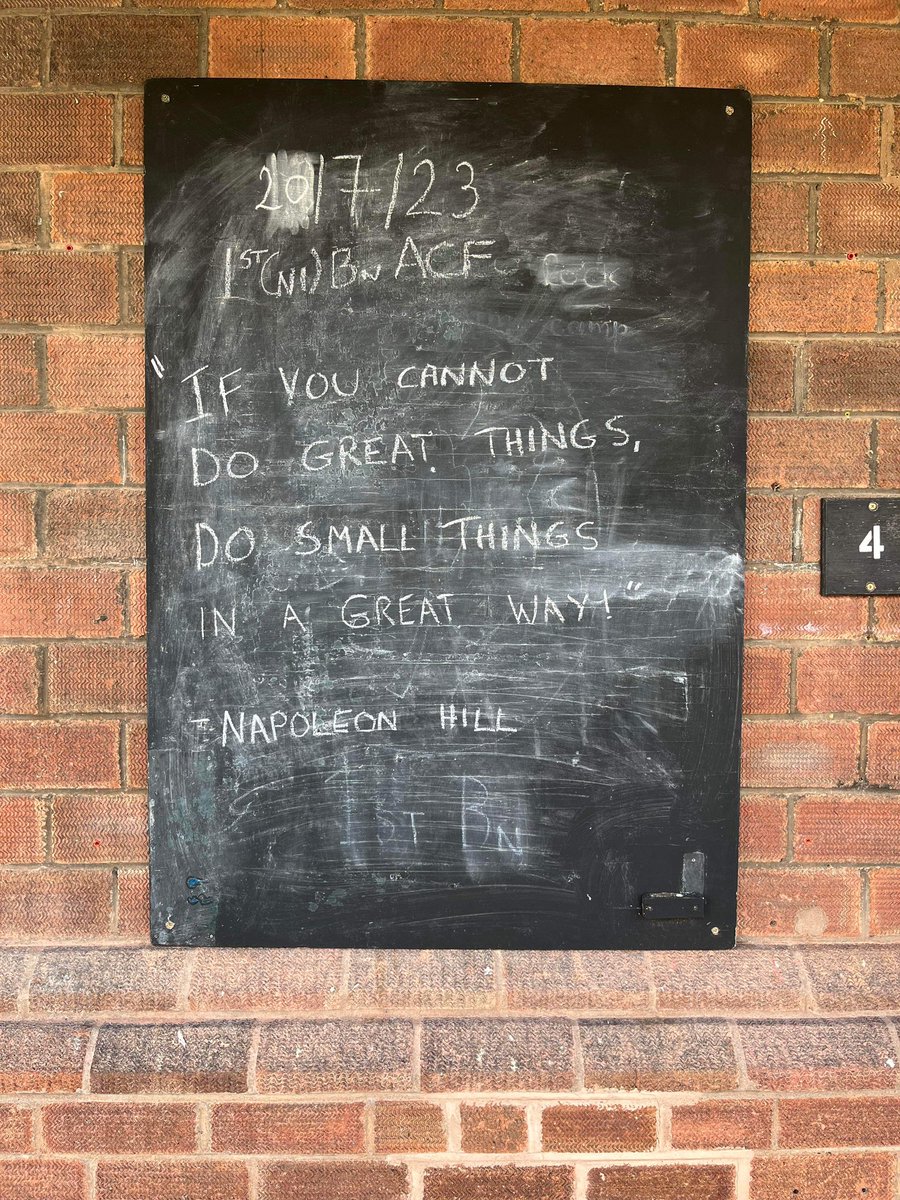 20/7/23
1ST (NI) BN ACF
camp
"IF YOU CANNOT
DO GREAT THINGS,
DO SMALL THINGS
IN A GREAT WAY!"
- NAPOLEON HILL
1ST BN
4